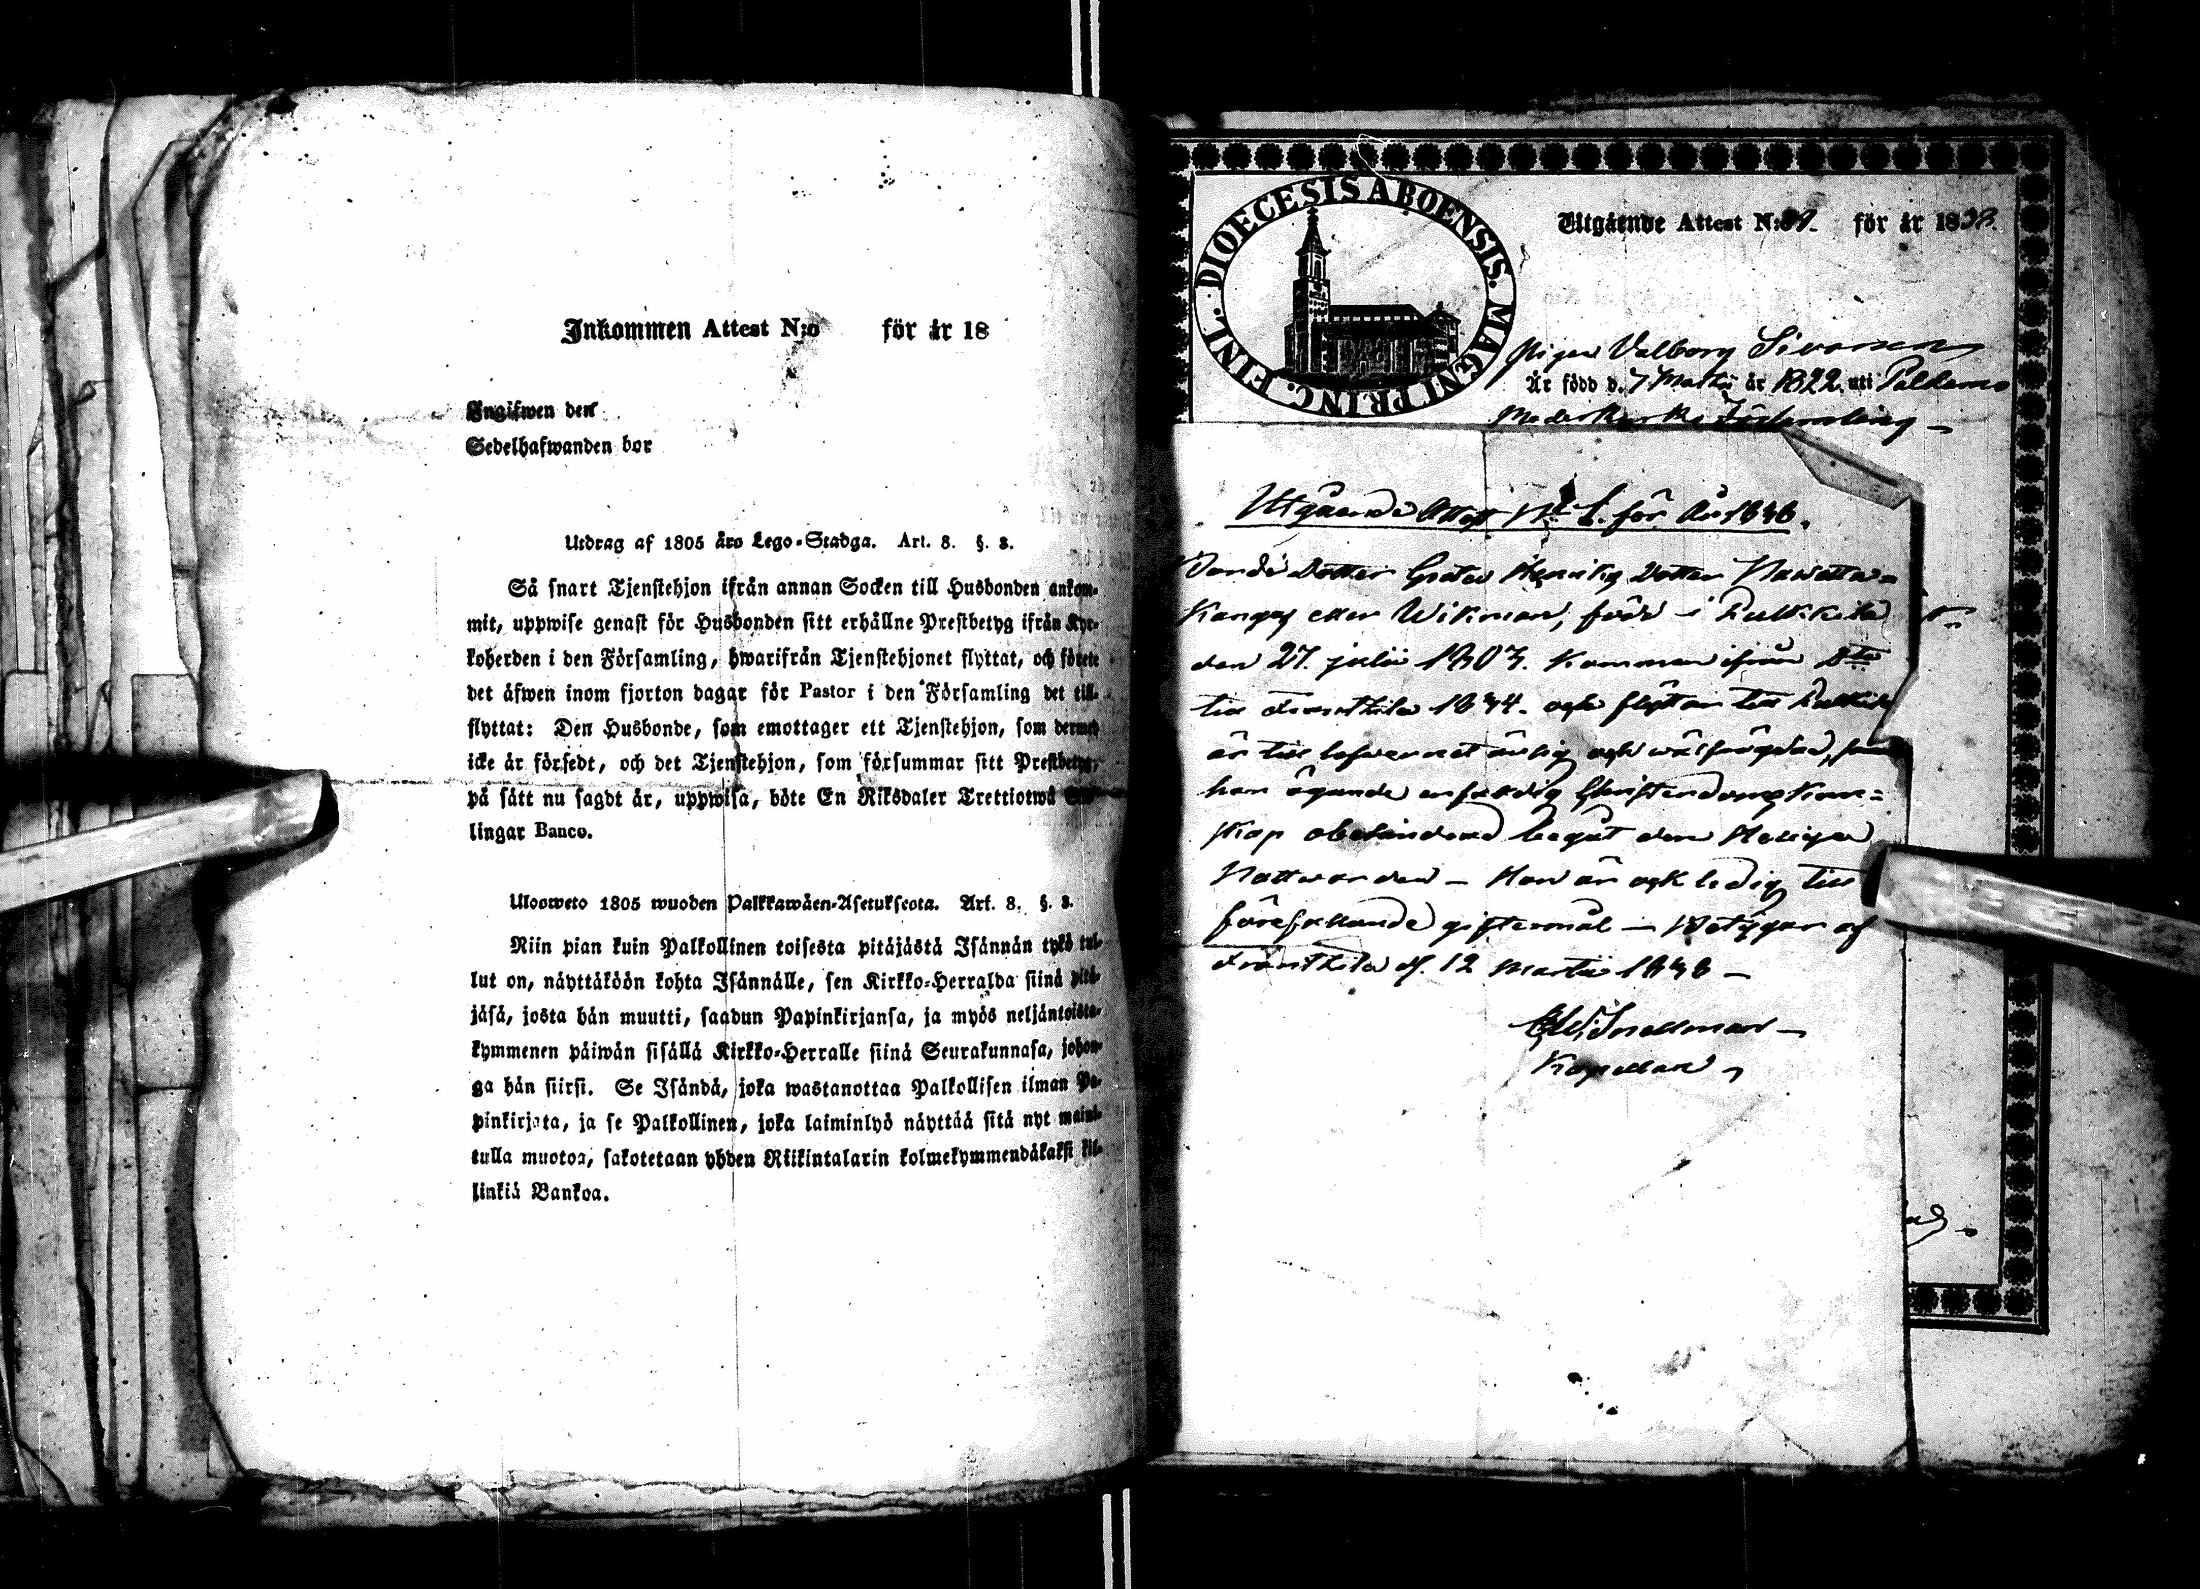 Inkommen Attest N:o för år 18
Ingifwen den
Sedelhafwanden bor
Utdrag af 1805 års Lego-Stadga. Art. 8. §. 3.
Så snart Tjenstehjon ifrån annan Socken till Husbonden ankom-
mit, uppwise genast för Husbonden sitt erhållne Prestbetyg ifrån Kyr-
koherden i den Församling, hwarifrån Tjenstehjonet flyttat, och förete
det äfwen inom fjorton dagar för Pastor i den Församling det till-
flyttat: Den Husbonde, som emottager ett Tjenstehjon, som dermed
icke är försedt, och det Tjenstehjon, som försummar sitt Prestbetyg,
på sätt nu sagdt är, uppwisa, böte En Riksdaler Trettiotwå
lingar Banco.
Ulosweto 1805 wuoden Palkkawäen-Asetuksesta. Art. 8. §. 3.
Niin pian kuin Palkollinen toisesta pitäjästä Isännän tykö tul-
lut on, näyttäköön kohta Isännälle, sen Kirkko-Herralda siinä pitä-
jäsä, josta hän muutti, saadun Papinkirjansa, ja myös neljäntoista-
kymmenen päiwän sisällä Kirkko-Herralle siinä Seurakunnasa, johon-
ga hän siirsi. Se Isändä, joka wastanottaa Palkollisen ilman Pa-
pinkirjata, ja se Palkollinen, joka laiminlyö näyttää sitä nyt maini-
tulla muotoa, sakotetaan yhden Riikintalarin kolmekymmendäkaksi kil-
linkiä Bankoa.
DIOECESIS ABOENSIS. MAGNI PRINC. FINL.
Utgående Attest N:o för år 1838.
Pigan Valborg
Är född d. 7 Martii år 1822 uti Paldamo
Moderkyrko Församling
Utgående Attest No 1. för År 1848.
Bonde Dottern Greta Henrics Dotter
Kangas eller Wikman, född i Pulkkila
den 27. julii 1803. Kommen ifrån
till Frantsila 1844. och flyttar till Pulkkila
är till lefvernet ärlig och wälfrägdad,
har ägande enfaldig Christendoms Kun-
skap obehindrad begåt den Heliga
Nattvarden — Hon är ock ledig till
förefallande giftermål — Betygar af
Frantsila d. 12 Martii 1848 —
Snellman
Kapellan